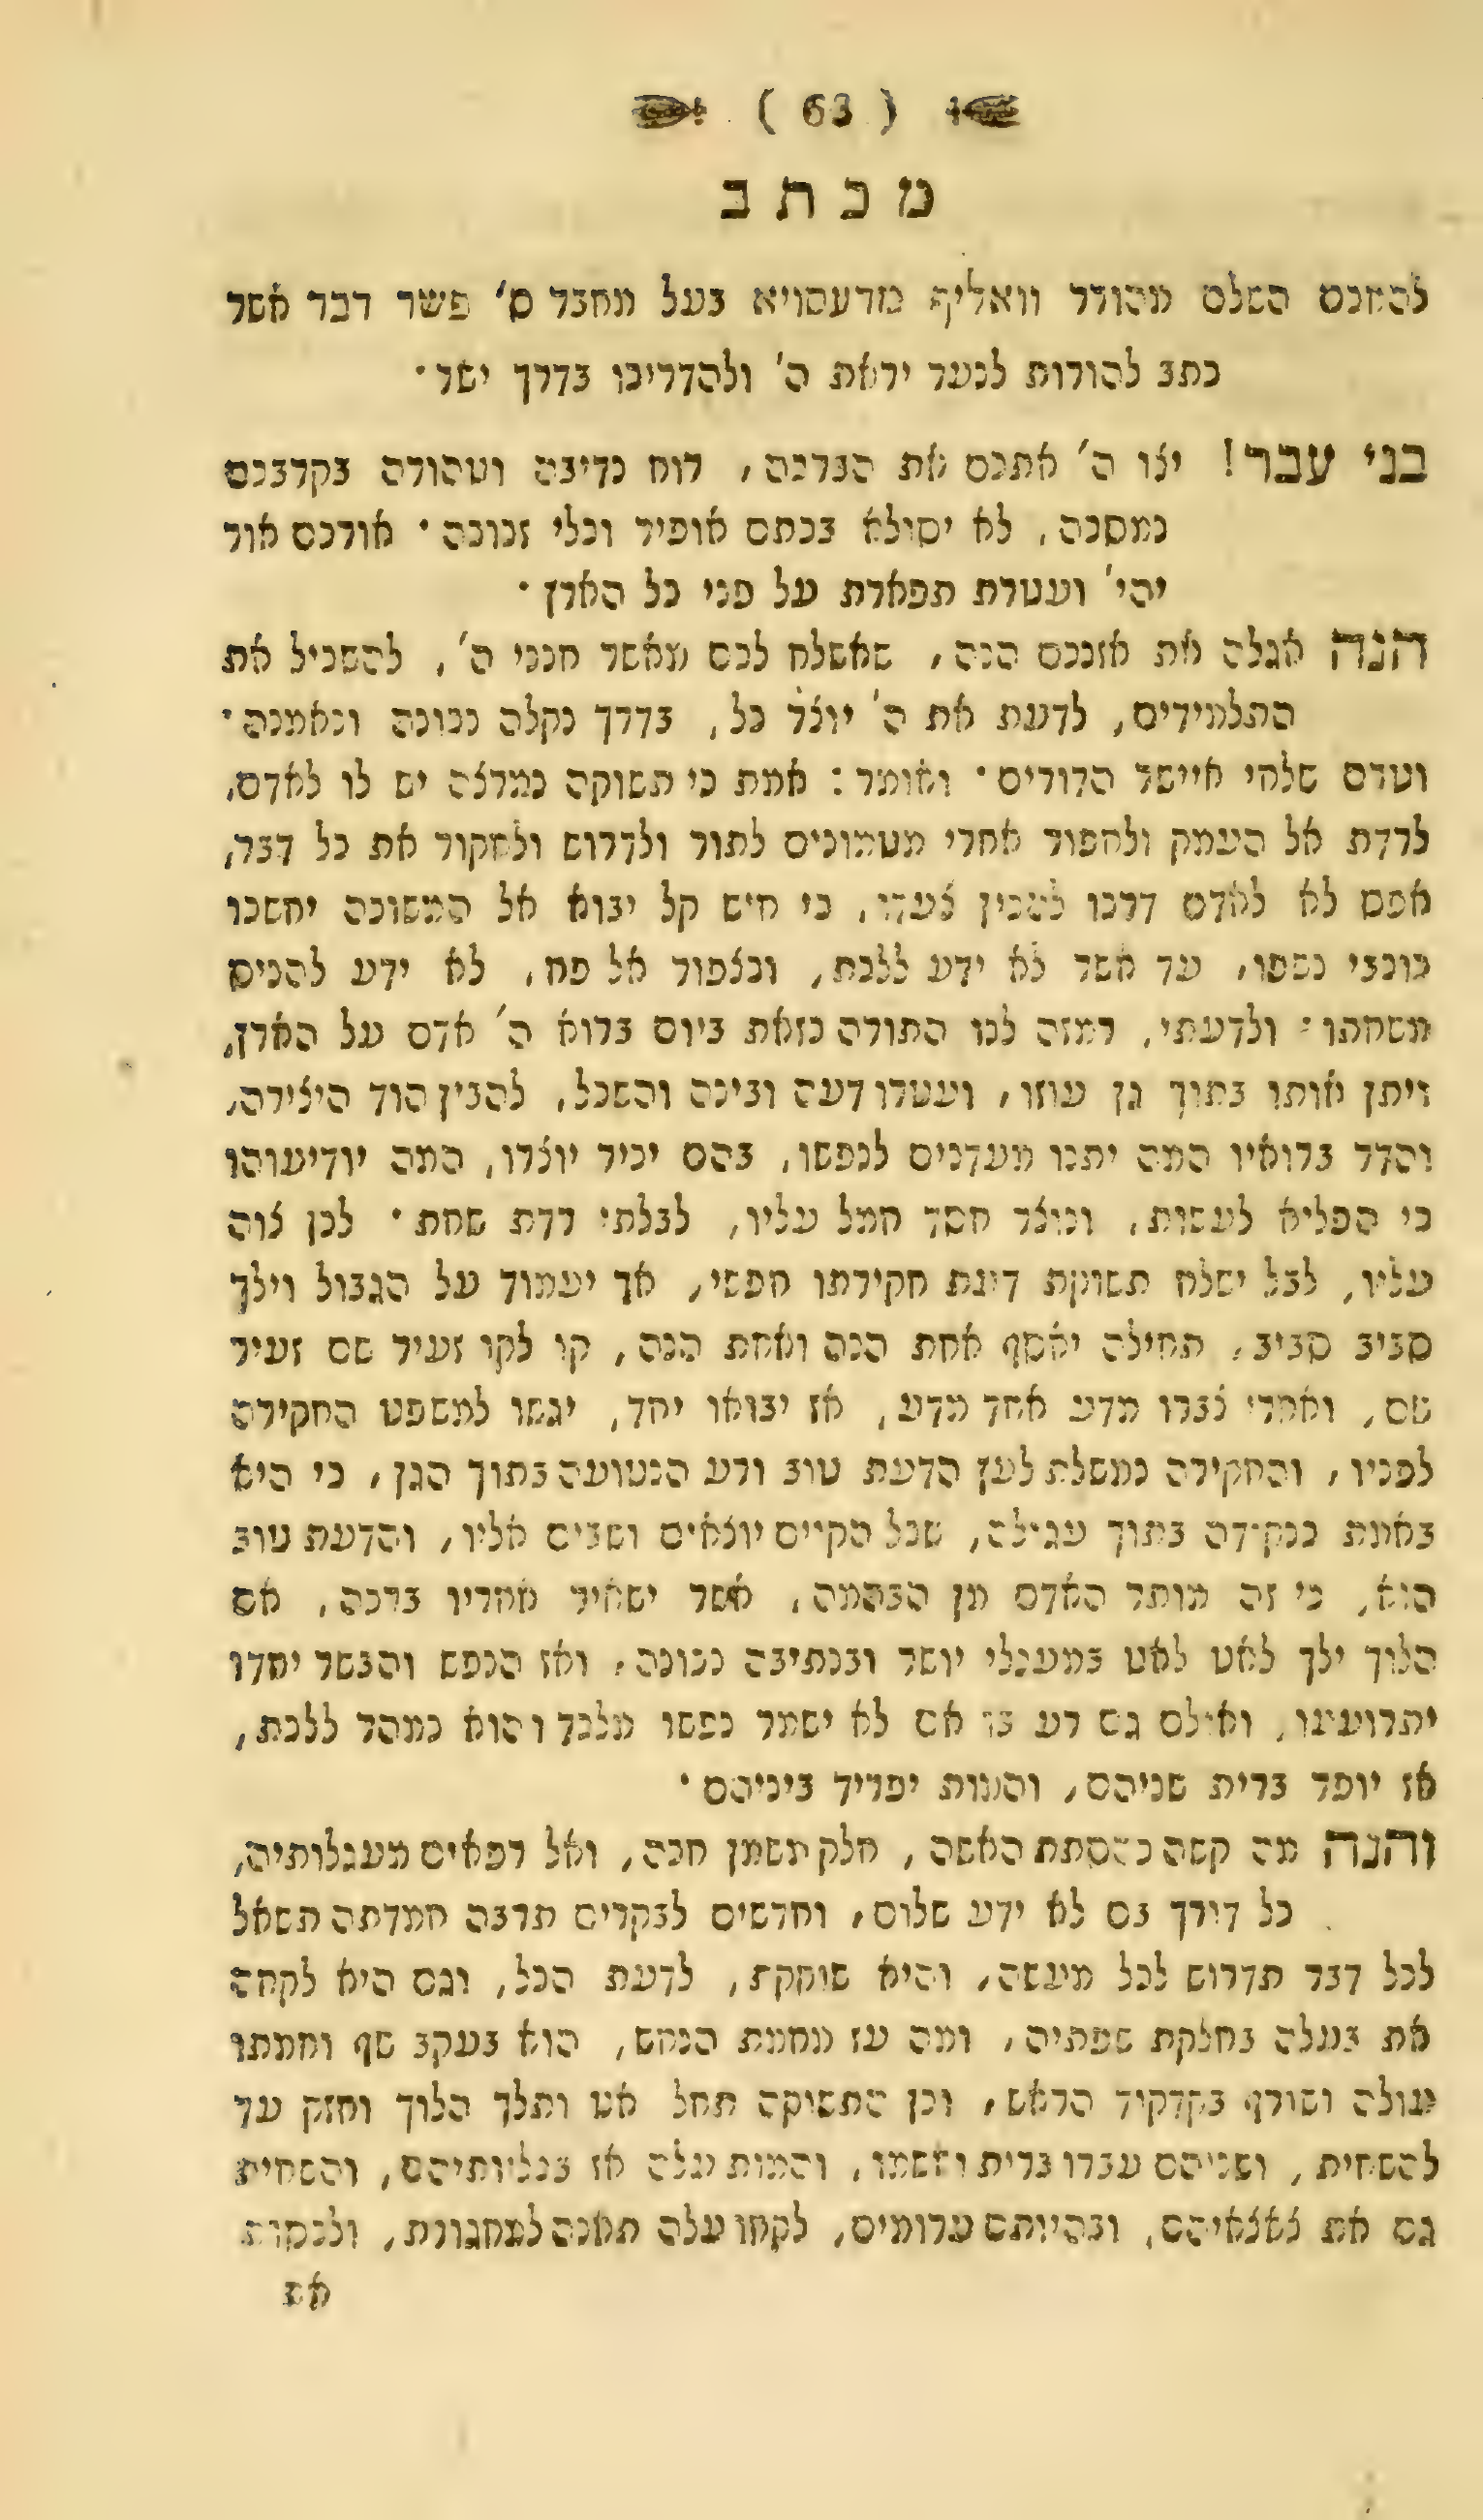 ( 63 )
מכתב
להחכם השלם מהודר וואליף מדעסויא בעל מחבר ס׳ פשר דבר אשר
כתב להורות לנער יראת ה׳ ולהדריכו בדרך ישר ·
בני עבר! יצו ה׳ אתכם את הברכה, רוח נדיבה וטהורה בקרבכם
נמסכה, לא יסולא בכתם אופיר וכלי זכוכה · אורכם אור
יהי׳ ועטרת תפארת על פני כל הארץ ·
הנה אגלה את אזנכם הנה, שאשלח לכם מאשר חנני ה׳, להשכיל את
התלמידים, לדעת את ה׳ יוצר כל, בדרך נקלה נכונה ונאמנה ·
וטרם שלחי איישר הדורים · ואומר: אמת כי תשוקה נמרצה יש לו לאדם,
לרדת אל העמק ולחפור אחרי מטמונים לתור ולדרוש ולחקור את כל דבר,
אפס לא לאדם דרכו להכין צעדו, כי חיש קל יבוא אל המשוכה יחשכו
כוכבי נשפו, עד אשר לא ידע ללכת, וכצפור אל פח, לא ידע להניס
משחתו : ולדעתי, רמזה לנו התורה כזאת ביום ברוא ה׳ אדם על הארץ,
ויתן אותו בתוך גן עוזו, ועטרו דעה ובינה והשכל, להבין הוד היצירה,
והדר ברואיו המה יתנו מעדנים לנפשו, בהם יכיר יוצרו, המה יודיעוהו
כי הפליא לעשות, ונוצר חסד חמל עליו, לבלתי רדת שחת · לכן צוה
עליו, לבל ישלח תשוקת דעת חקירתו חפשי, אך יעמוד על הגבול וילך
סביב סביב, תחילה יאסף אחת הנה ואחת הנה, קו לקו זעיר שם זעיר
שם, ואחרי צברו מדע אחד מדע, אז יבואו יחד, יגשו למשפט החקירה
לפניו, והחקירה נמשלת לעץ הדעת טוב ורע הנטועה בתוך הגן, כי היא
באמת כנקודה בתוך עגולה, שכל הקוים יוצאים ושבים אליו, והדעת טוב
הוא, כי זה מותר האדם מן הבהמה, אשר ישאיר אחריו ברכה, אם
הלוך ילך לאט לאט במעגלי יושר ובנתיבה נכונה, ואז הנפש והבשר יחדו
יתרועעו, ואולם גם רע בו אם לא ישמר נפשו מלכד והוא נמהר ללכת,
אז יופר ברית שניהם, והמות יפריד ביניהם ·
והנה מה קשה כהסתת האשה, חלק משמן חכה, ואל רפאים מעגלותיה,
כל דורך בם לא ידע שלום, וחדשים לבקרים תרבה חמדתה תשאל
לכל דבר תדרוש לכל מעשה, והיא שוקקת, לדעת הכל, וגם היא לקחה
את בעלה בחלקת שפתיה, ומה עז מחמת הנחש, הוא בעקב שף וחמתו
עולה ושורף בקדקוד הראש, וכן התשוקה תחל אט ותלך הלוך וחזק עד
להשחית, ושניהם עברו ברית ואשמו, והמות עלה אז בכליותיהם, והשחית
גם את צאצאיהם, ובהיותם ערומים, לקחו עלה תאנה למחגורת, ולכסות